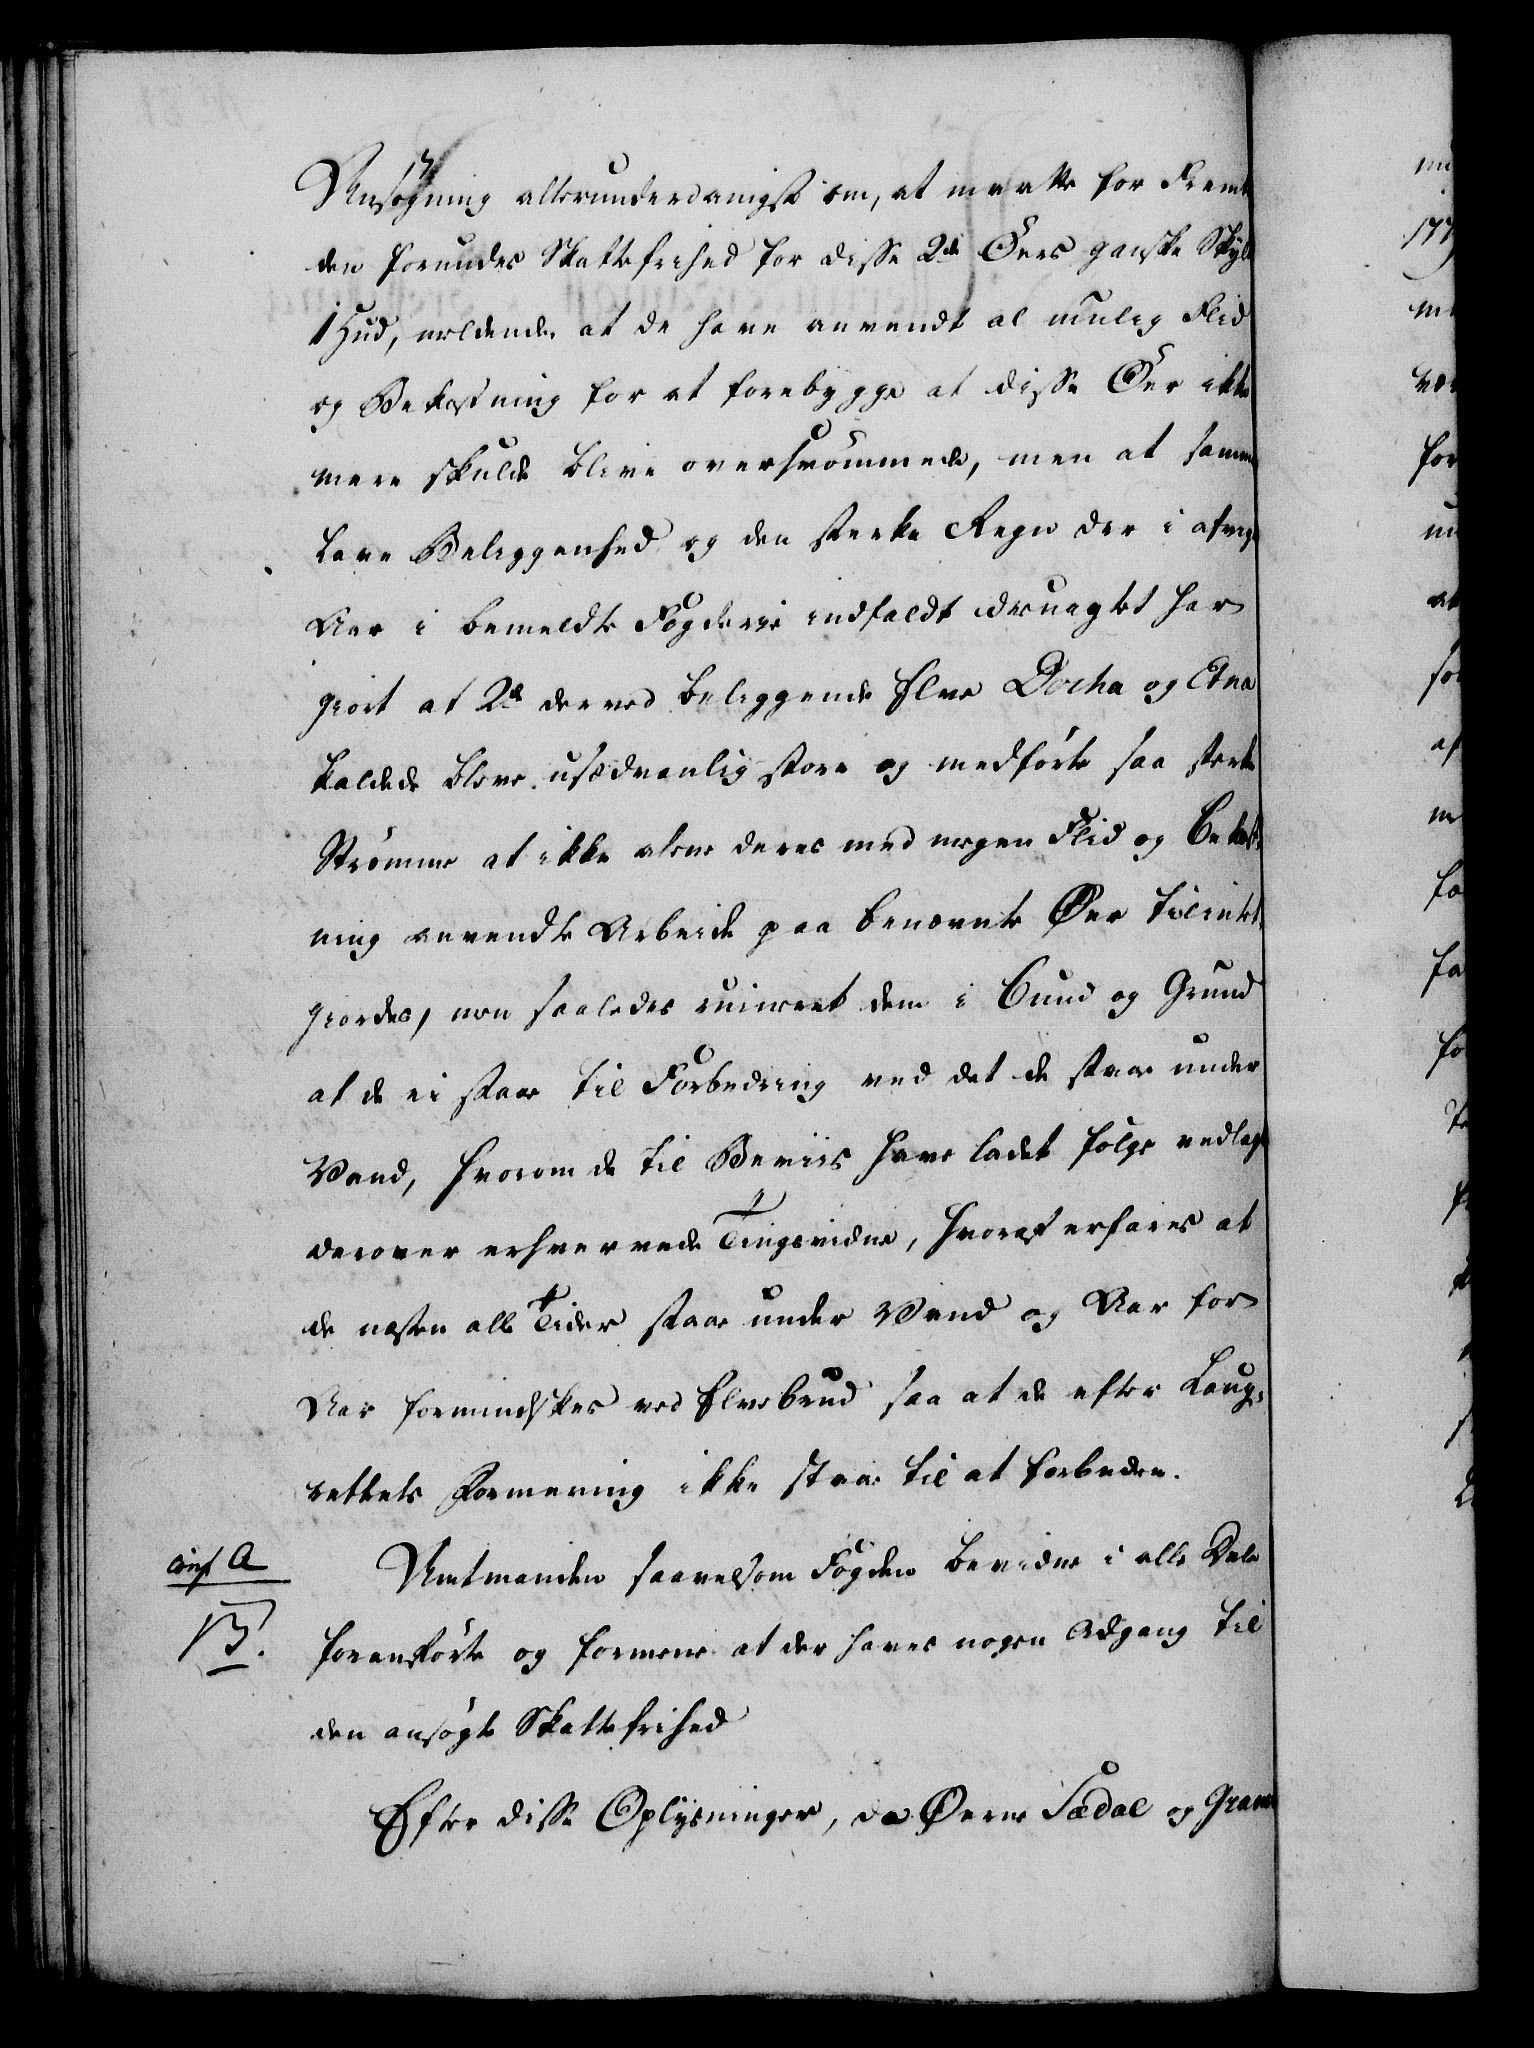 Ansøgning allerunderdanigst om, at maatte for Fremti
den forundes Skattefrihed for disse 2de Øers ganske Skyld
1 Hud, meldende at de have anvendt al muelig Flid
og Bekostning for at forebygge at disse Öer ikke
mere skulde blive oversvömmede, men at samme
lave Beliggenhed og den sterke Regn der i afvigte
Aar i bemeldte Fögderie indfaldt uagtet har
giort at 2de derved beliggende Elve Docka og Etna
kaldede bleve usædvanlig store og medförte saa sterke
Strömme at ikke alene deres med megen Flid og Bekost-
ning anvendte Arbeide paa benævnte Øer tilintet-
giordes, men saaledes ruineret dem i Bund og Grund
at de ei staae til Forbedring ved det de staae under
Vand, hvorom de til Beviis have ladet følge vedlagt
derover erhvervede Tingsvidne, hvoraf erfares at
de næsten alle Tider staae under Vand og Aar for
Aar formindskes ved Elvebrud saa at de efter Laug-
rettets Formening ikke staae til at forbedre.
conf A
Amtmanden saavelsom Fogden bevidne i alle Dele
B.
foranførte og formene at der haves nogen Adgang til
den ansøgte Skattefrihed
Efter disse Oplysninger, da Øerne Sædal og Gran